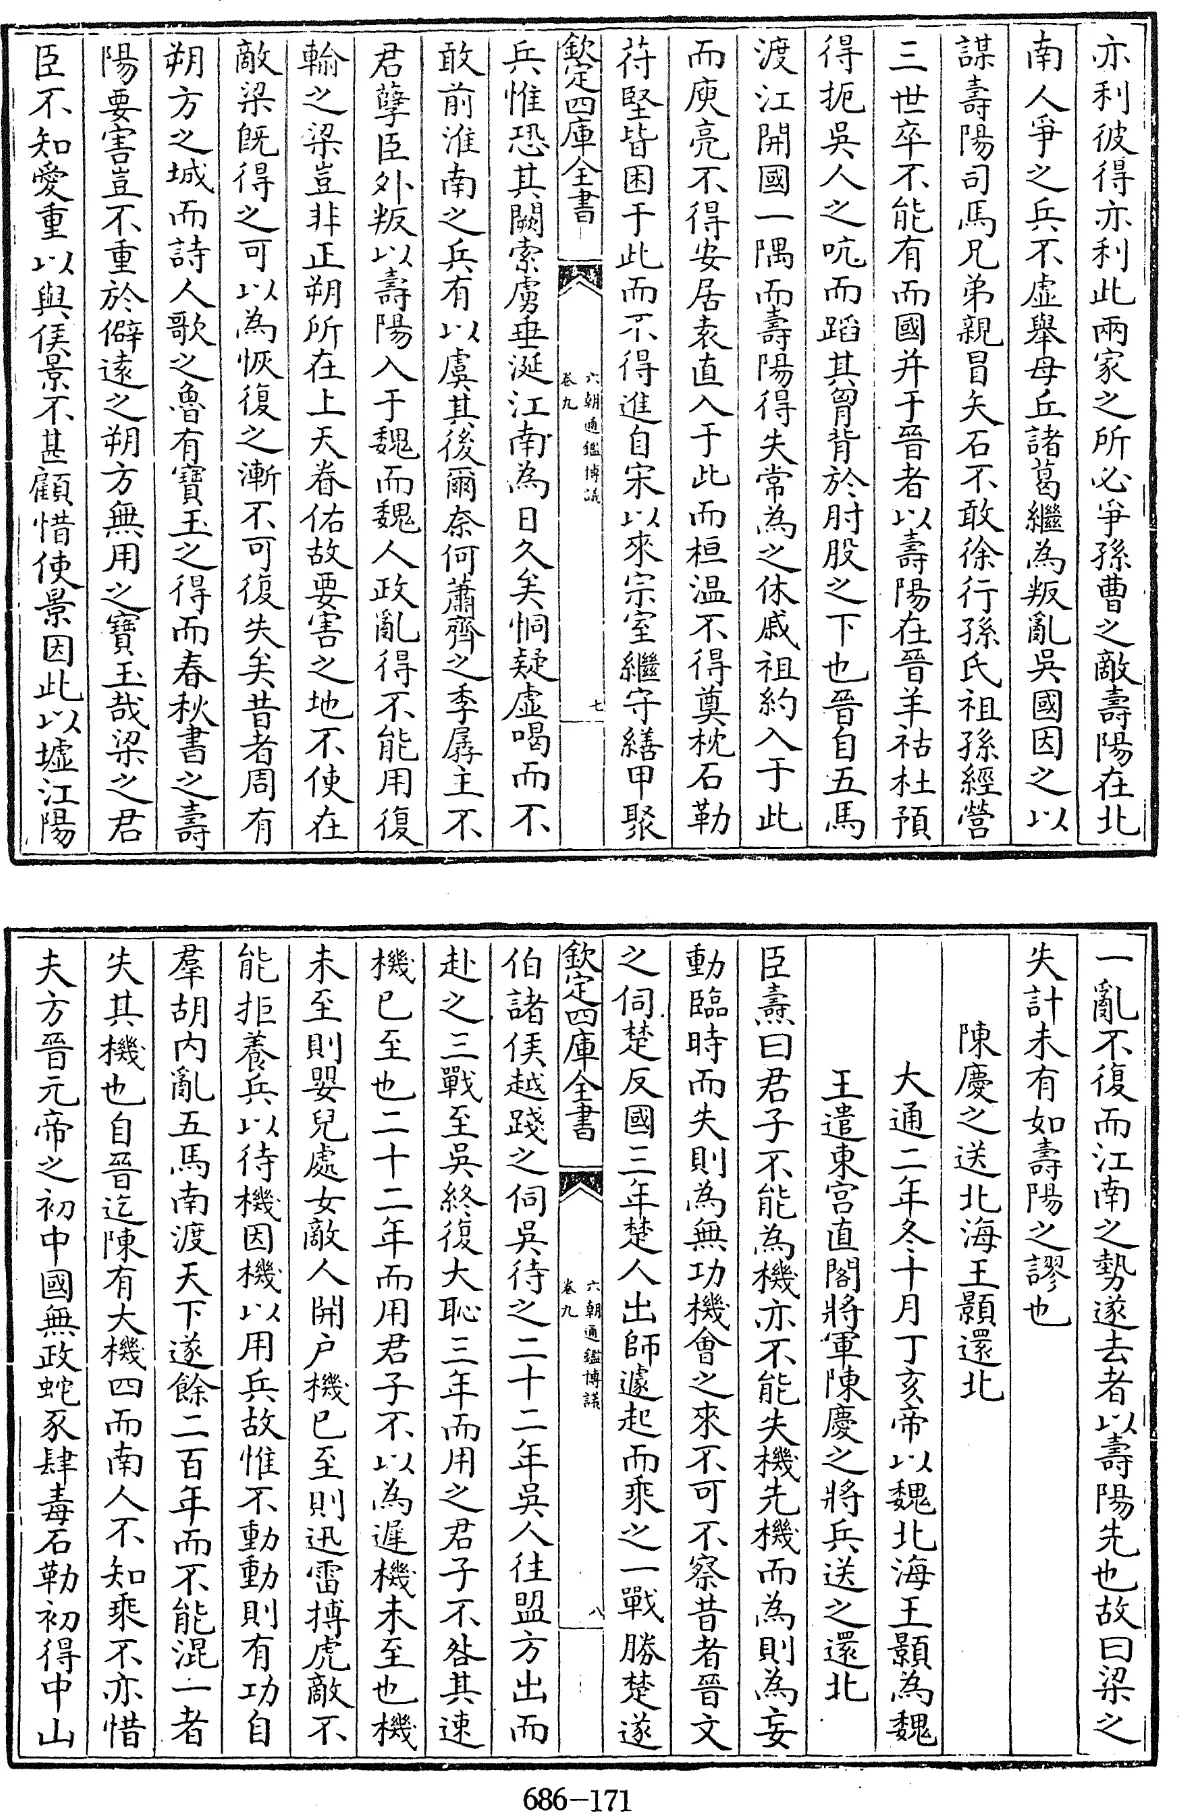 亦利彼得亦利此兩家之所必爭孫曹之敵壽陽在北
南人爭之兵不虛舉母丘諸葛繼為叛亂吳國因之以
謀壽陽司馬兄弟親冒矢石不敢徐行孫氏祖孫經營
三世卒不能有而國并于晉者以壽陽在晉羊祜杜預
得扼吳人之吭而蹈其胷背於肘股之下也晉自五馬
渡江開國一隅而壽陽得失常為之休戚祖約入于此
而庾亮不得安居袁直入于此而桓温不得奠枕石勒
苻堅皆困于此而不得進自宋以來宗室繼守繕甲聚
欽定四庫全書
六朝通鑑博議
卷九
七
兵惟恐其闕索虜垂涎江南為日久矣恫疑虛喝而不
敢前淮南之兵有以虞其後爾奈何蕭齊之季孱主不
君孽臣外叛以壽陽入于魏而魏人政亂得不能用復
輸之梁豈非正朔所在上天眷佑故要害之地不使在
敵梁旣得之可以為恢復之漸不可復失矣昔者周有
朔方之城而詩人歌之魯有寶玉之得而春秋書之壽
陽要害豈不重於僻遠之朔方無用之寶玉哉梁之君
臣不知愛重以與侯景不甚顧惜使景因此以墟江陽
一亂不復而江南之勢遂去者以壽陽先也故曰梁之
失計未有如壽陽之謬也
陳慶之送北海王顥還北
大通二年冬十月丁亥帝以魏北海王顥為魏
王遣東宮直閣將軍陳慶之將兵送之還北
臣燾曰君子不能為機亦不能失機先機而為則為妄
動臨時而失則為無功機會之來不可不察昔者晉文
之伺楚反國三年楚人出師遽起而乘之一戰勝楚遂
欽定四庫全書
六朝通鑑博議
卷九
八
伯諸侯越踐之伺吳待之二十二年吳人往盟方出而
赴之三戰至吳終復大恥三年而用之君子不咎其速
機已至也二十二年而用君子不以為遲機未至也機
未至則嬰兒處女敵人開户機已至則迅雷搏虎敵不
能拒養兵以待機因機以用兵故惟不動動則有功自
羣胡内亂五馬南渡天下遂餘二百年而不能混一者
失其機也自晉迄陳有大機四而南人不知乘不亦惜
夫方晉元帝之初中國無政蛇豕肆毒石勒初得中山
686-171